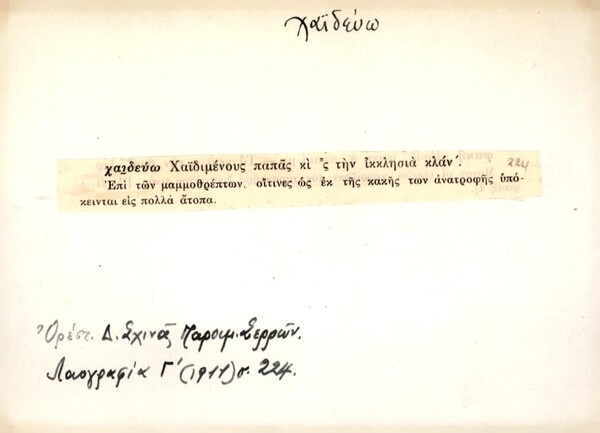 χαϊδεύω
χαϊδεύω Χαϊδιμένους παπᾶς κὶ ’ς τὴν ἰκκλησιὰ κλάν’.
224
Ἐπὶ τῶν μαμμοθρέπτων, οἵτινες ὡς ἐκ τῆς κακῆς των ἀνατροφῆς ὑπό-
κεινται εἰς πολλὰ ἄτοπα.
Ὀρέστ. Δ. Σχινᾶ Παροιμ. Σερρῶν.
Λαογραφία Γ΄ (1911) σ. 224.